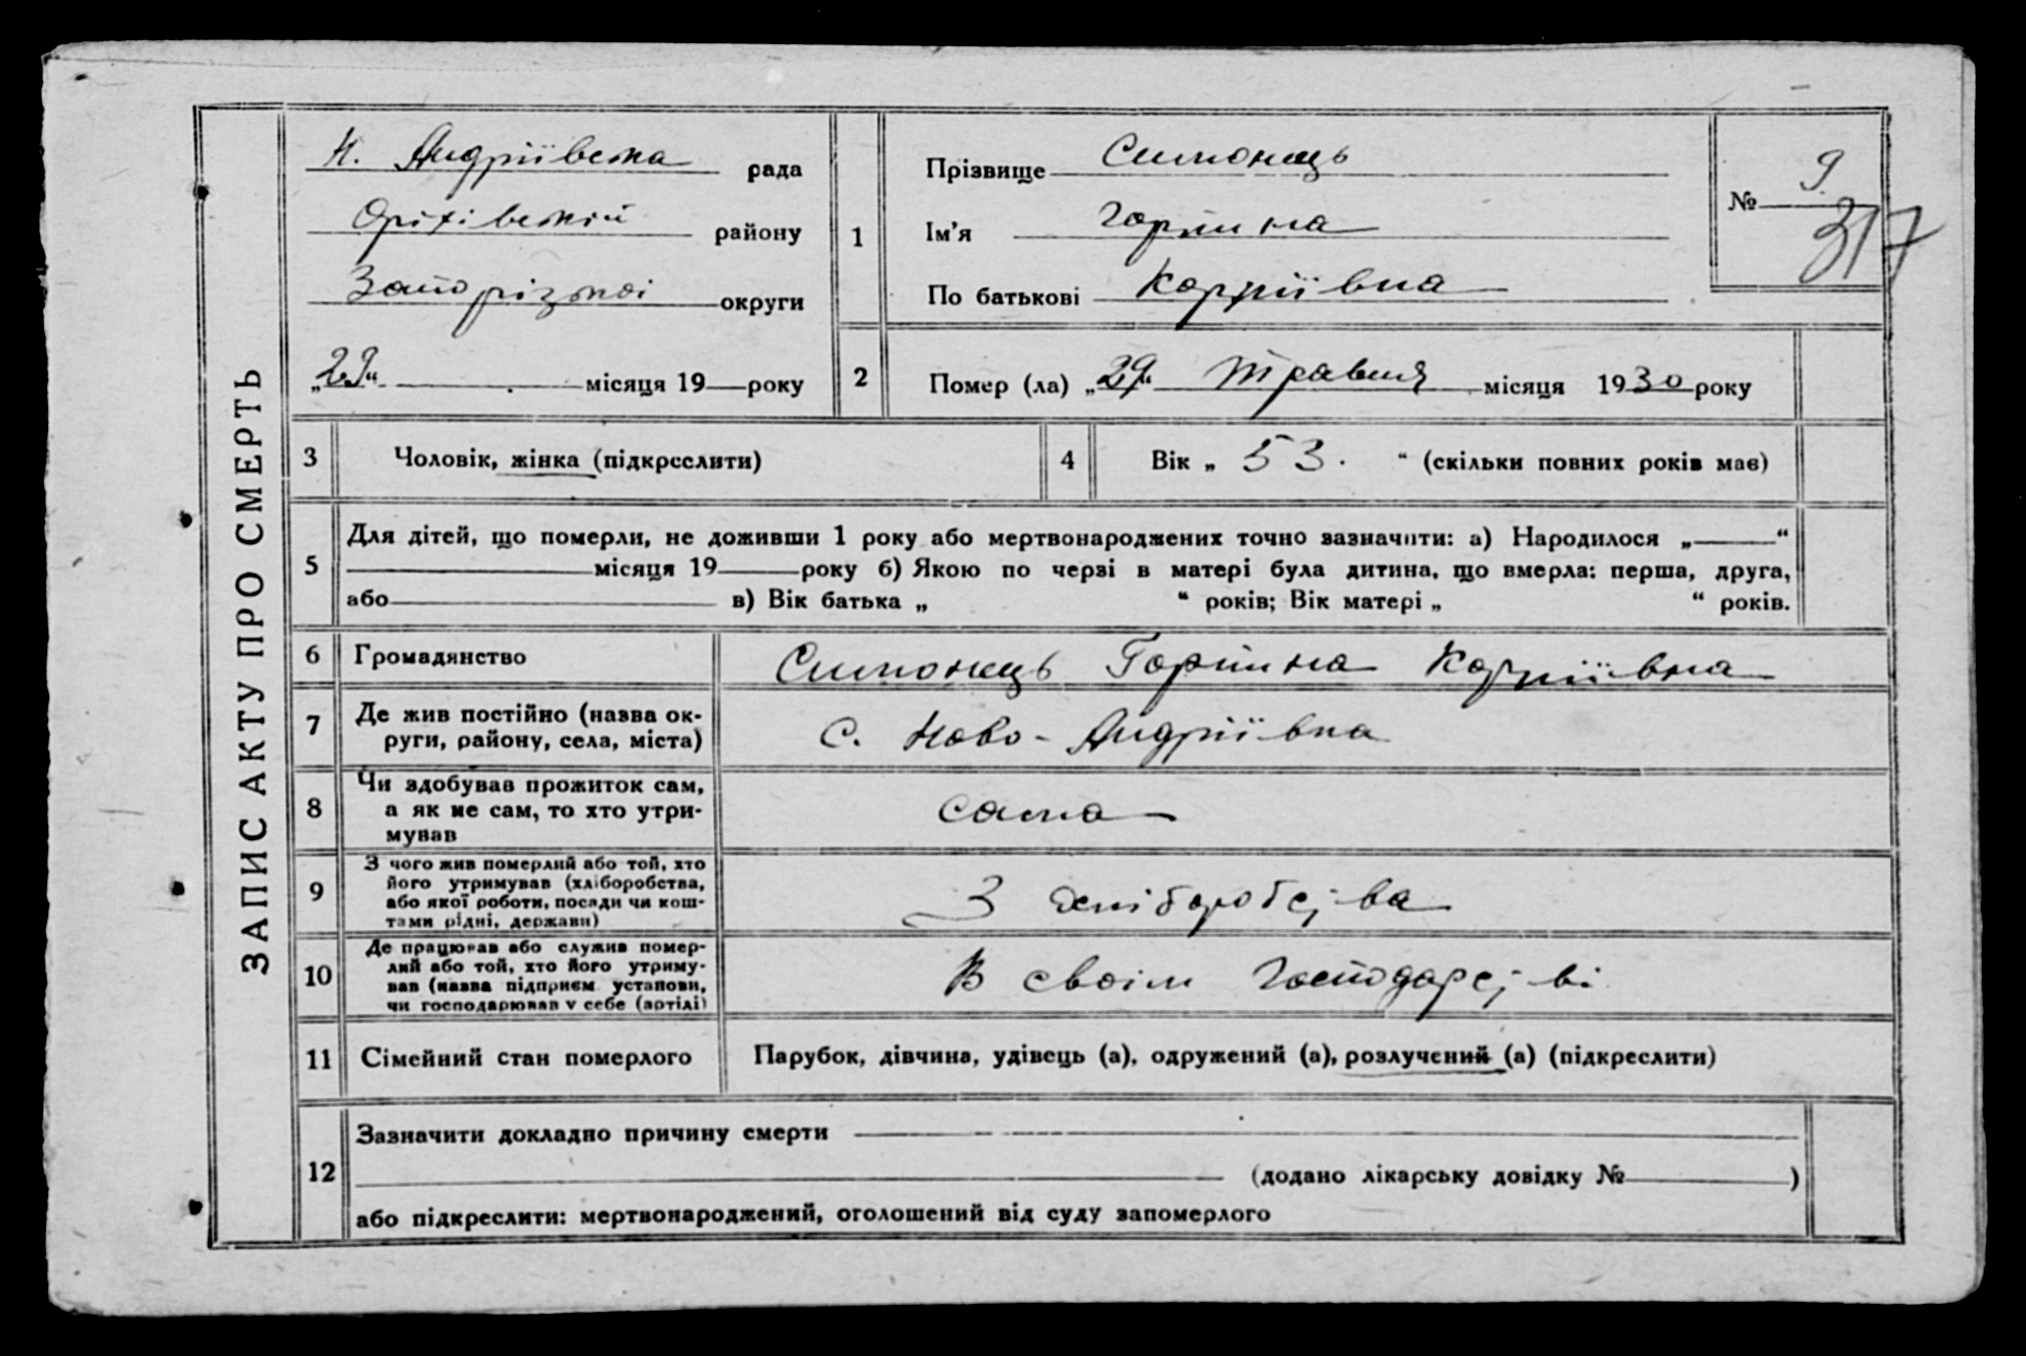 ЗАПИС АКТУ ПРО СМЕРТЬ
Н. Андріївська рада
Оріхівській району
Запорізької округи
„29“ місяця 19 року
1
Прізвище Симонець
Ім'я Горпина
По батькові Карпіївна
№ 9
317
2
Помер (ла) „29“ травня місяця 1930 року
3 Чоловік, жінка (підкреслити)
4 Вік „ 53. “ (скільки повних років має)
5
Для дітей, що померли, не доживши 1 року або мертвонароджених точно зазначити: а) Народилося „ “
місяця 19 року б) Якою по черзі в матері була дитина, що вмерла: перша, друга,
або в) Вік батька „ “ років; Вік матері „ “ років.
6 Громадянство Симонець Горпина Карпіївна
7 Де жив постійно (назва ок-
руги, району, села, міста)
С. Ново-Андріївка
8 Чи здобував прожиток сам,
а як не сам, то хто утри-
мував
сама
9 З чого жив померлий або той, хто
його утримував (хліборобства,
або якої роботи, посади чи кош-
тами рідні, держави)
З хліборобства
10 Де працював або служив помер-
лий або той, хто його утриму-
вав (назва підприєм. установи,
чи господарював у себе (артілі)
В своїм господарстві
11 Сімейний стан померлого Парубок, дівчина, удівець (а), одружений (а), розлучений (а) (підкреслити)
12
Зазначити докладно причину смерти
(додано лікарську довідку № )
або підкреслити: мертвонароджений, оголошений від суду запомерлого